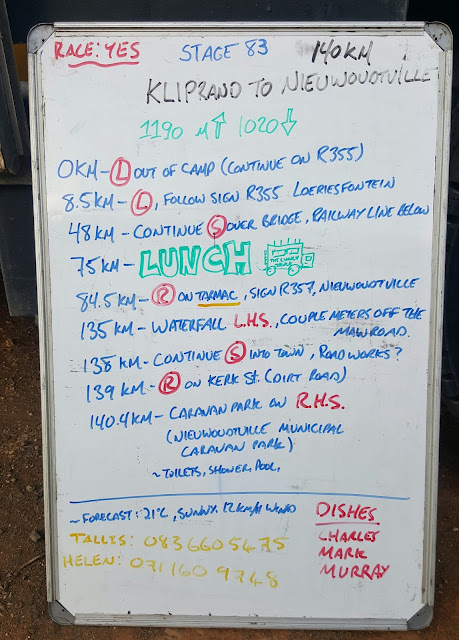 RACE: YES STAGE 83 140KM
KLIPRAND TO NIEUWOUDTVILLE
1190 M↑ 1020↓
0KM - L OUT OF CAMP (CONTINUE ON R355)
8.5KM - L, FOLLOW SIGN R355 LOERIESFONTEIN
48KM - CONTINUE S OVER BRIDGE, RAILWAY LINE BELOW
75KM - LUNCH THE LUNCH TRUCK
84.5KM - R ON TARMAC, SIGN R357, NIEUWOUDTVILLE
135KM - WATERFALL L.H.S., COUPLE METERS OFF THE
MAIN ROAD.
138KM - CONTINUE S INTO TOWN, ROAD WORKS?
139KM - R ON KERK St. (DIRT ROAD)
140.4KM - CARAVAN PARK ON R.H.S.
(NIEUWOUDTVILLE MUNICIPAL
CARAVAN PARK)
~ TOILETS, SHOWER, POOL,
~ FORECAST: 21°C, SUNNY. 12KM/H WIND
TALLIS: 083 660 5475
HELEN: 071 160 9748
DISHES
CHARLES
MARK
MURRAY